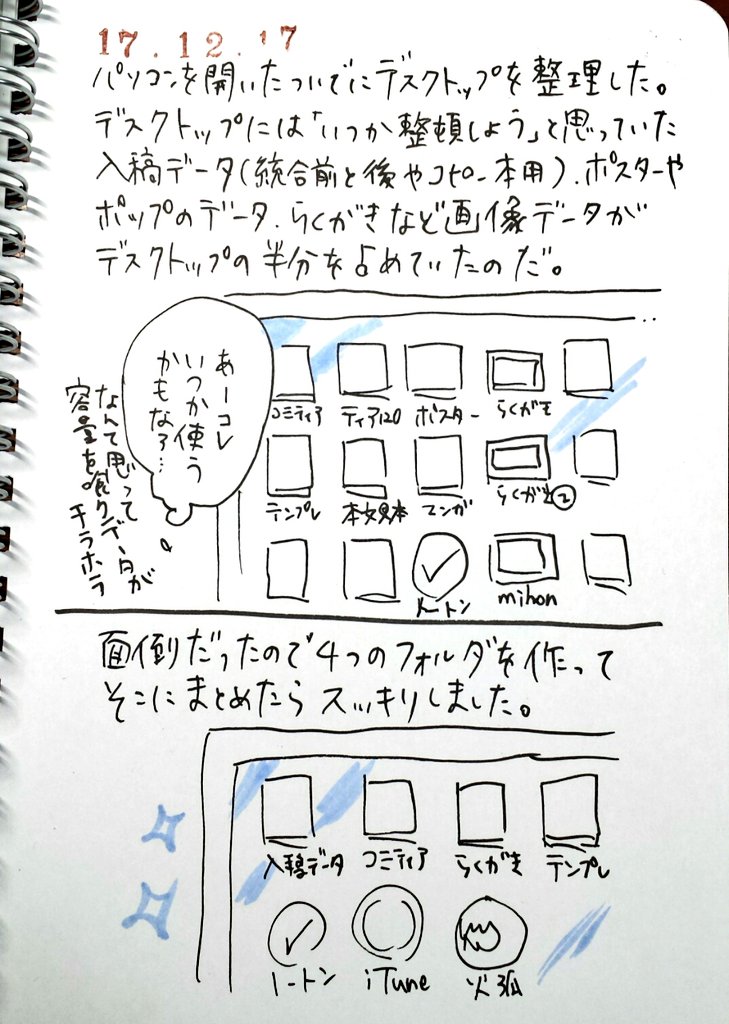 17.12.17
パソコンを開いたついでにデスクトップを整理した。
デスクトップには「いつか整頓しよう」と思っていた
入稿データ(統合前と後やコピー本用)、ポスターや
ポップのデータ、らくがきなど画像データが
デスクトップの半分を占めていたのだ。
あーコレ
いつか使う
かもなァ…
なんて思って
容量を喰うデータが
チラホラ
コミティア
ティア120
ポスター
らくがき
テンプレ
本文見本
マンガ
らくがき②
ノートン
mihon
面倒だったので4つのフォルダを作って
そこにまとめたらスッキリしました。
入稿データ
コミティア
らくがき
テンプレ
ノートン
iTune
火狐